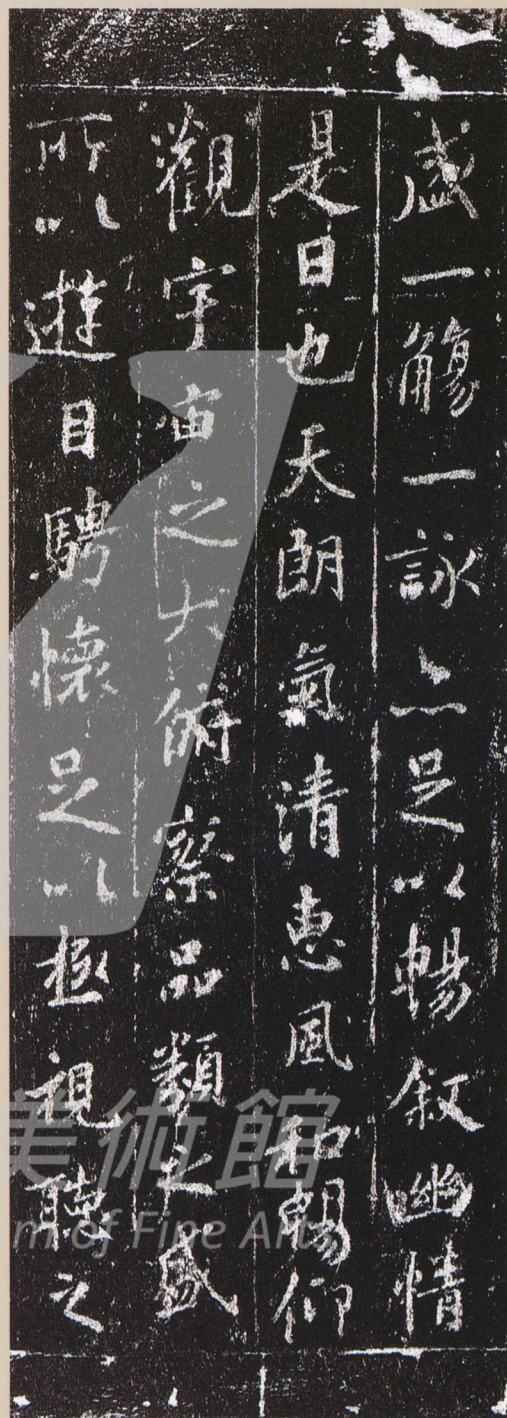 盛一觴一詠亦足以暢叙幽情
是日也天朗氣清惠風和暢仰
觀宇宙之大俯察品類之盛
所以遊目騁懷足以極視聽之
美術館
m of Fine Arts